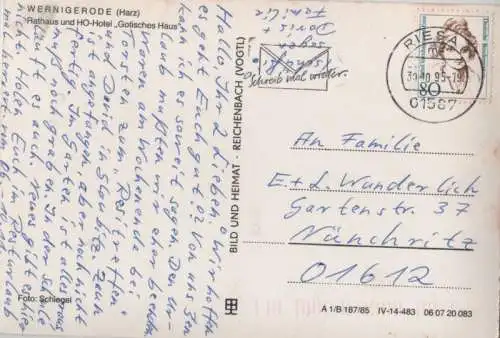 WERNIGERODE (Harz)
Rathaus und HO-Hotel „Gotisches Haus"
Hallo Ihr 2 Lieben, o Wir hoffen
es geht Euch gut?! Von uns 3en
kann ich es soweit sagen. Den Ur-
laub mußten wir eher beenden
am Wochenende
Torsten zum „
und David in
ist angefangen, aber noch nicht
fertig. Im Garten ist alles raus,
noch graben. In der Schule
läuft es auch, neues gibt es hier
nicht. Holen Euch
segen
Doris +
Familie
BILD UND HEIMAT · REICHENBACH (VOGTL)
Schreib mal wieder.
RIESA
30.10.95-19
01587
80
An Familie
E.+L. Wunderlich
Gartenstr. 37
Nünchritz
01612
Foto: Schlegel
A 1/B 187/85 IV-14-483 06 07 20 083